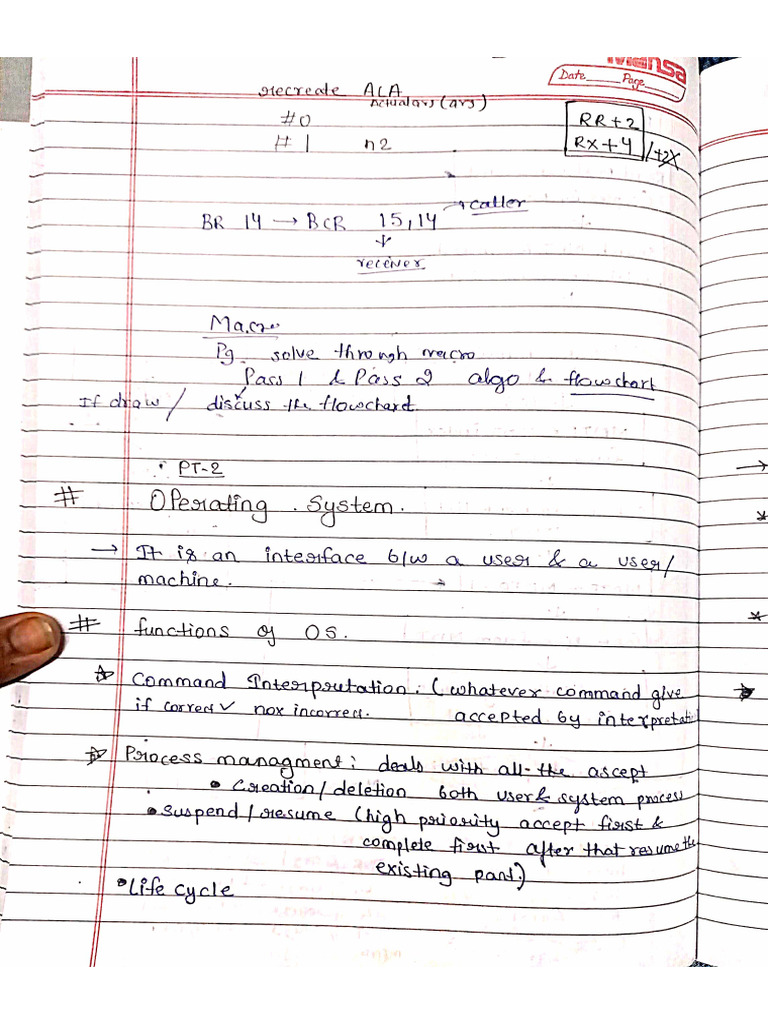 Mansa
Date Page
recreate ALA
Actual ars (ars)
#0
#1 n2
RR+2
RX+4 /+2X
BR 14 → BCR 15,14 → caller
↓
reciever
Macro
Pg. solve through macro
Pass 1 & Pass 2 algo & flowchart
If draw / discuss the flowchart
• PT-2
# Operating System.
→ It is an interface b/w a user & a user/
machine.
# functions of OS.
☆ Command Interprutation: (whatever command give
if correct ✓ nox incorrect. accepted by interpretati
☆ Process managment: deals with all the ascept
• Creation/deletion both user & system process
• suspend/resume (high priority accept first &
complete first after that resume the
existing part)
• Life cycle